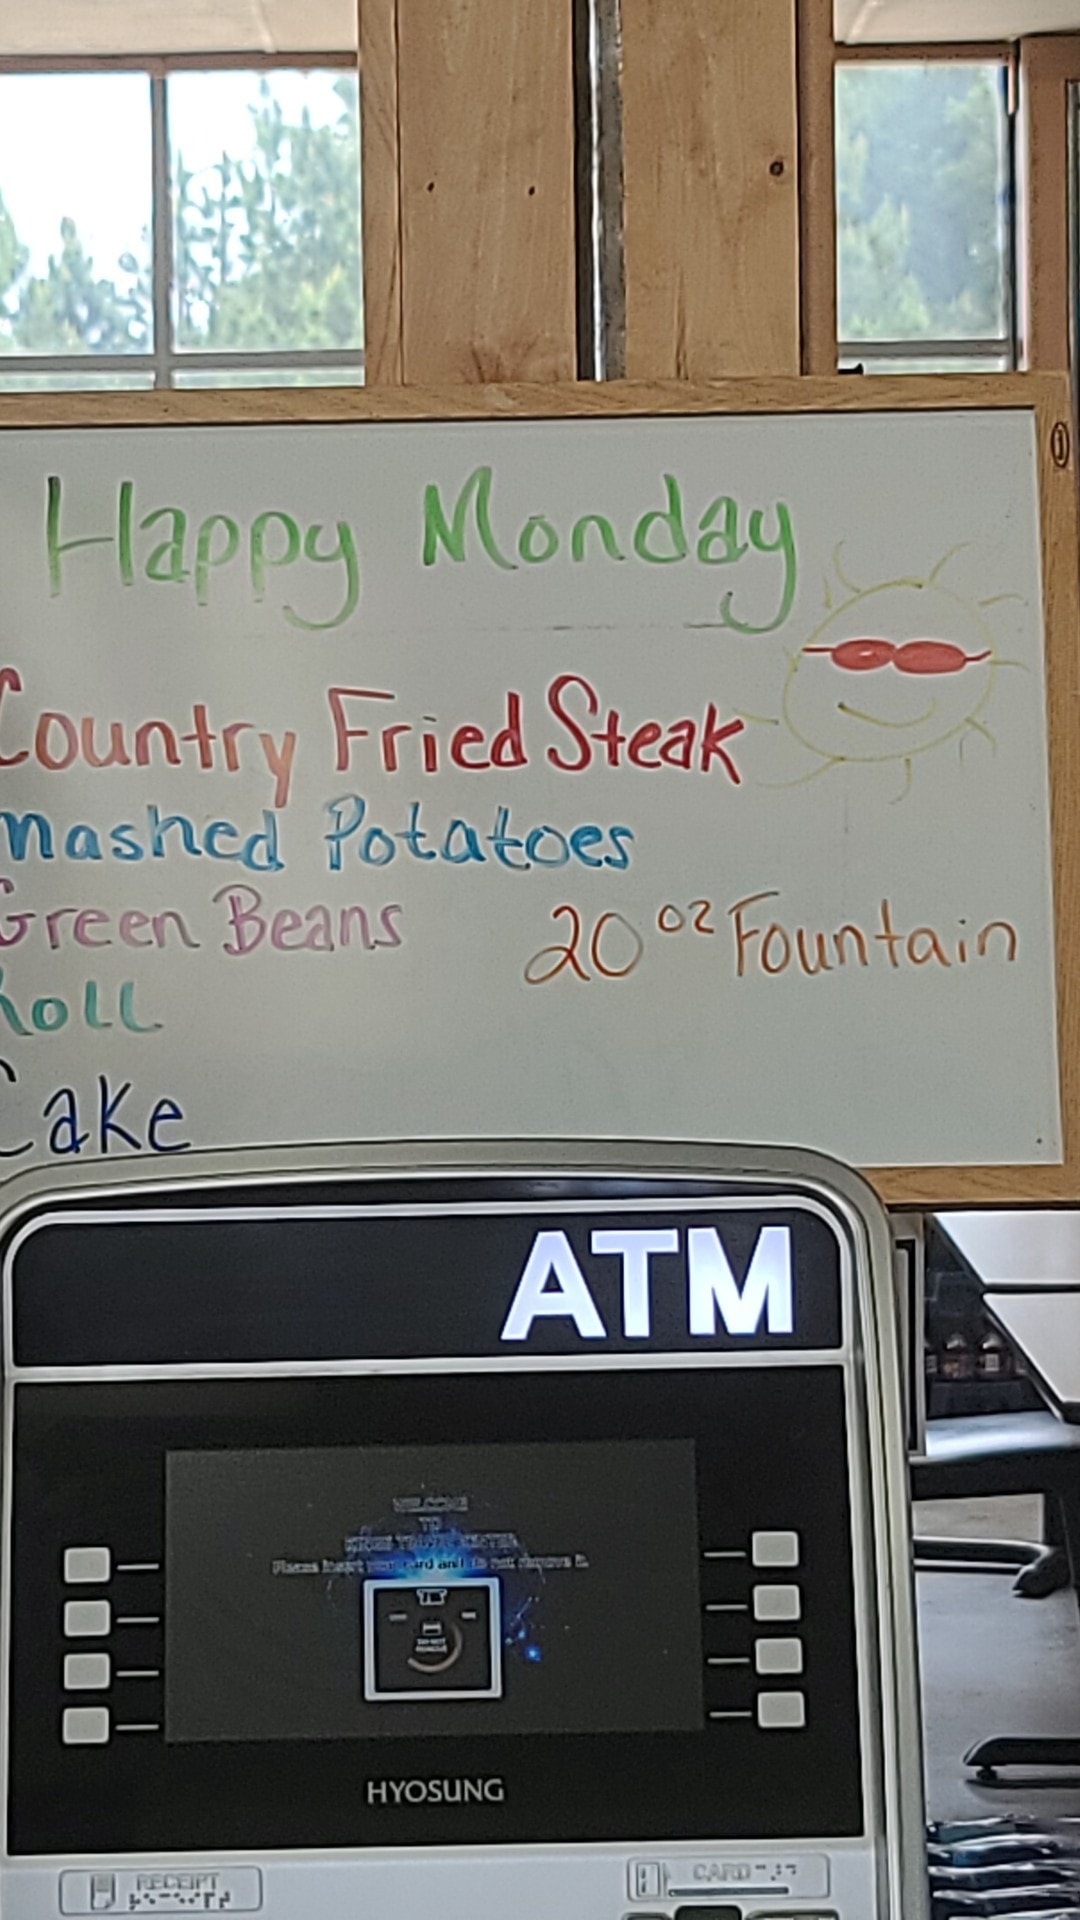 Happy Monday
Country Fried Steak
mashed Potatoes
Green Beans
20 oz Fountain
Roll
Cake
ATM
WELCOME
TO
KINGS TRAVEL CENTER
Please insert your card and do not remove it.
DO NOT
REMOVE
HYOSUNG
RECEIPT
CARD